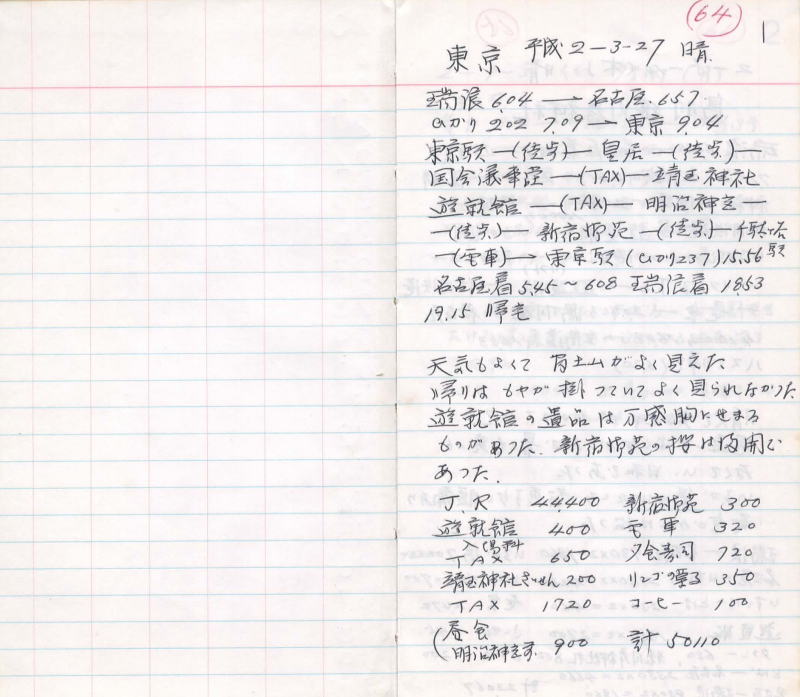 64
東京 平成2-3-27 晴
瑞浪 6.04 → 名古屋 6.57
ひかり 202 7.09 → 東京 9.04
東京駅 ―(徒歩)― 皇居 ―(徒歩)―
国会議事堂 ―(TAX)― 靖国神社
遊就館 ―(TAX)― 明治神宮 ―
―(徒歩)― 新宿御苑 ―(徒歩)― 千駄ヶ谷駅
―(電車)→ 東京駅 (ひかり237) 15.56
名古屋着 5.45 ~ 608 瑞浪着 18.53
19.15 帰宅
天気もよくて 富士山がよく見えた
帰りは もやが掛つていてよく見られなかつた
遊就館の遺品は万感胸にせまる
ものがあつた. 新宿御苑の桜は満開で
あつた.
J.R 44400 新宿御苑 300
遊就館 400 電車 320
入場料
TAX 650 夕食寿司 720
靖国神社さいせん 200 リンゴ 350
TAX 1720 コーヒー 100
(昼食 明治神宮 900 計 50110